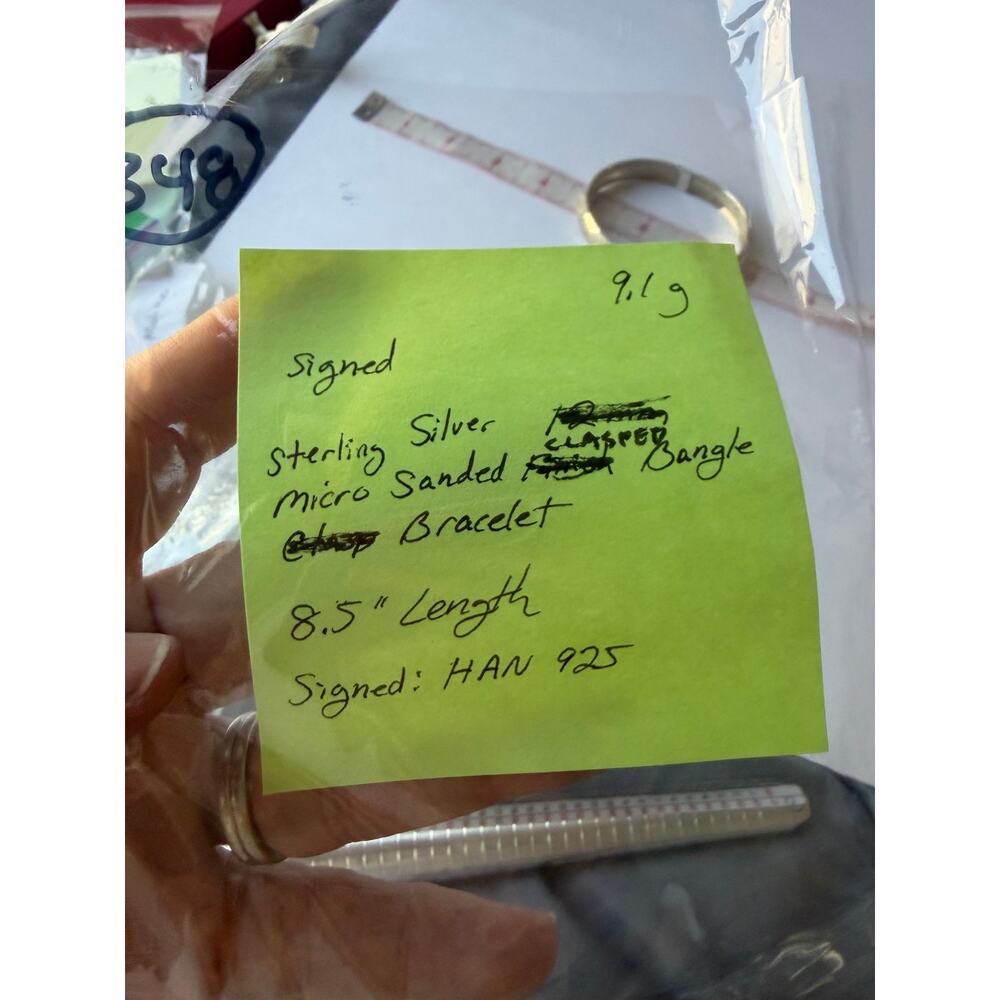 348
9.1 g
Signed
Sterling Silver
CLASPED
Micro Sanded Bangle
Bracelet
8.5" Length
Signed: HAN 925